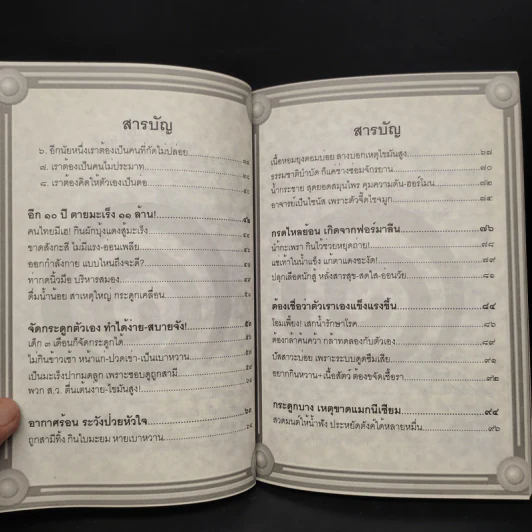 สารบัญ
๖. อีกนัยหนึ่งเราต้องเป็นคนที่กัดไม่ปล่อย
๗. เราต้องเป็นคนไม่ประมาท
๘. เราต้องคิดให้ตัวเองเป็นต่อ
อีก ๑๐ ปี ตายมะเร็ง ๑๑ ล้าน!
คนไทยมีเฮ! กินผักบุ้งแดงสู้มะเร็ง
ขาดสังกะสี ไม่มีแรง-อ่อนเพลีย
ออกกำลังกาย แบบไหนถึงจะดี?
ทากดนิ้วมือ บริหารสมอง
ดื่มน้ำน้อย สาเหตุใหญ่ กระดูกเคลื่อน
จัดกระดูกตัวเอง ทำได้ง่าย-สบายจัง!
เด็ก ๓ เดือนก็จัดกระดูกได้
ไม่กินข้าวเช้า หน้าแก่-ปวดเข่า-เป็นเบาหวาน
เป็นมะเร็งปากมดลูก เพราะชอบดูถูกสามี
พวก ส.ว. ตื่นเต้นง่าย-ไขมันสูง!
อากาศร้อน ระวังป่วยหัวใจ
ถูกสามีทิ้ง กินใบมะยม หายเบาหวาน
สารบัญ
เนื้อหอมยุงตอมบ่อย ลางบอกเหตุไขมันสูง ๖๗
ธรรมชาติบำบัด ก็แค่ช่างซ่อมจักรยาน ๗๐
น้ำกระชาย สุดยอดสมุนไพร คุมความดัน-ฮอร์โมน ๗๒
อาจารย์เป็นไซนัส เพราะตัวจี๊ดไรจมูก ๗๔
กรดไหลย้อน เกิดจากฟอร์มาลีน ๗๖
น้ำกะเพรา กินไว้ช่วยหยุดถ่าย! ๗๘
แช่เท้าในน้ำแข็ง แก้ตาแดงชะงัด! ๗๙
ปลุกเลือดนักสู้ หลั่งสารสุข-สดใส-อ่อนวัย ๘๑
ต้องเชื่อว่าตัวเราเองแข็งแรงขึ้น ๘๔
โฮมเพี้ยง! เสกน้ำรักษาโรค ๘๖
ต้องกล้าค้นคว้า กล้าทดลองกับตัวเอง ๘๘
ปัสสาวะบ่อย เพราะระบบดูดซึมเสีย ๙๑
อยากกินหวาน+เนื้อสัตว์ ต้องขจัดเชื้อรา ๙๒
กระดูกบาง เหตุขาดแมกนีเซียม ๙๔
สวดมนต์ให้น้ำฟัง ประหยัดตังค์ได้หลายหมื่น ๙๖